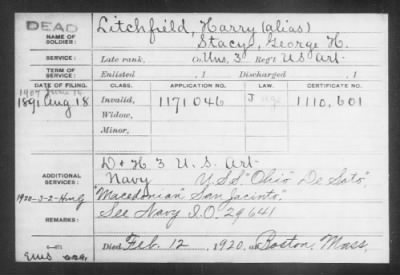 DEAD
NAME OF SOLDIER: Litchfield, Harry (alias)
Stacy, George H.
SERVICE: Late rank, Co. Uns, 3 Reg't US Art-
TERM OF SERVICE: Enlisted , 1 Discharged , 1
DATE OF FILING. CLASS. APPLICATION NO. LAW. CERTIFICATE NO.
1907
1891 Aug 18 Invalid, 1171046 1110,601
Widow,
Minor,
D & H. 3 U.S. Art-
ADDITIONAL SERVICES: Navy USS "Ohio" De Soto",
1920-3-2- "Macedonian" San Jacinto",
REMARKS: See Navy I.O. 29641
Died Feb. 12, 1920, at Boston, Mass.